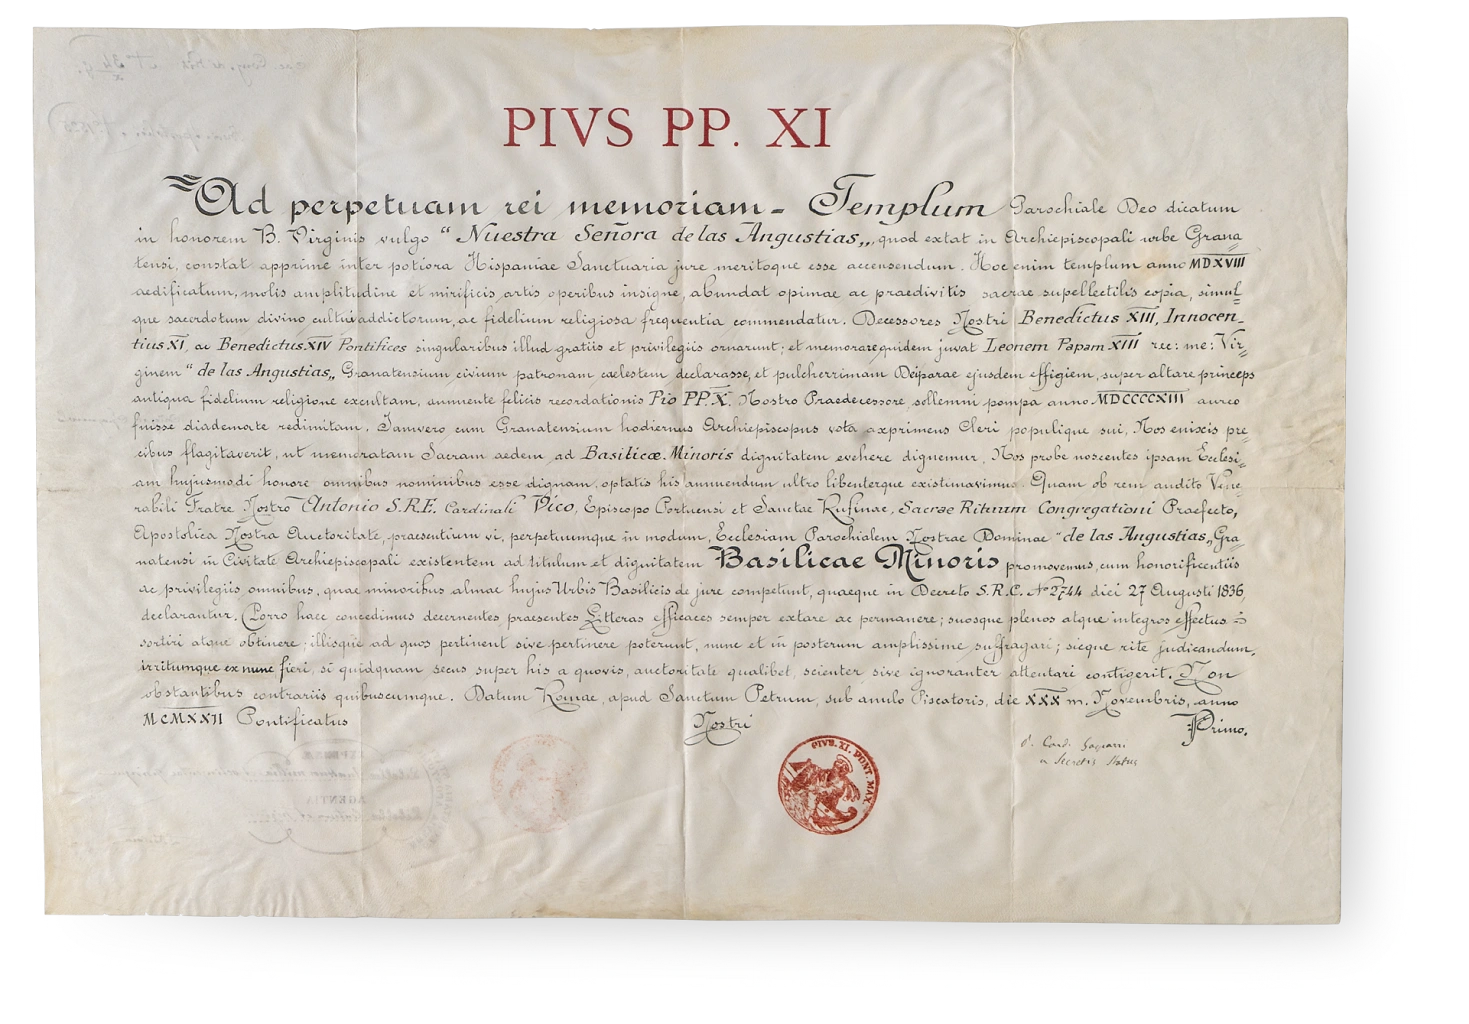 PIVS PP. XI
Ad perpetuam rei memoriam - Templum Parochiale Deo dicatum
in honorem B. Virginis vulgo “Nuestra Señora de las Angustias„, quod extat in Archiepiscopali urbe Grana=
tensi, constat apprime inter potiora Hispaniae Sanctuaria jure meritoque esse accensendum. Hoc enim templum anno MDXVIII
aedificatum, molis amplitudine et mirificis artis operibus insigne, abundat opimae ac praedivitis sacrae supellectilis copia, simul=
que sacerdotum divino cultui addictorum, ac fidelium religiosa frequentia commendatur. Decessores Nostri Benedictus XIII, Innocen-
tius XI, ac Benedictus XIV Pontifices singularibus illud gratiis et privilegiis ornarunt; et memorare quidem juvat Leonem Papam XIII rec: me: Vir=
ginem “de las Angustias„ Granatensium civium patronam caelestem declarasse, et pulcherrimam Deiparae ejusdem effigiem, super altare princeps
antiqua fidelium religione excultam, annuente felicis recordationis Pio PP. X. Nostro Praedecessore, sollemni pompa anno MDCCCCXIII aureo
fuisse diademate redimitam. Jamvero cum Granatensium hodiernus Archiepiscopus vota exprimens Cleri populique sui, Nos enixis pre=
cibus flagitaverit, ut memoratam Sacram aedem ad Basilicæ Minoris dignitatem evehere dignemur, Nos probe noscentes ipsam Ecclesi=
am hujusmodi honore omnibus nominibus esse dignam, optatis his annuendum ultro libenterque existimavimus. Quam ob rem audito Vene=
rabili Fratre Nostro Antonio S.R.E. Cardinali Vico, Episcopo Portuensi et Sanctae Rufinae, Sacrae Rituum Congregationi Praefecto,
Apostolica Nostra Auctoritate, praesentium vi, perpetuumque in modum, Ecclesiam Parochialem Nostrae Dominae “de las Angustias„ Gra=
natensi in Civitate Archiepiscopali existentem ad titulum et dignitatem Basilicae Minoris promovemus, cum honorificentiis
ac privilegiis omnibus, quae minoribus almae hujus Urbis Basilicis de jure competunt, quaeque in Decreto S.R.C. Nº 2744 diei 27 Augusti 1836,
declarantur. Porro haec concedimus decernentes praesentes Litteras efficaces semper extare ac permanere; suosque plenos atque integros effectus =
sortiri atque obtinere; illisque ad quos pertinent sive pertinere poterunt, nunc et in posterum amplissime suffragari; sicque rite judicandum,
irritumque ex nunc fieri, si quidquam secus super his a quovis, auctoritate qualibet, scienter sive ignoranter attentari contigerit. Non
obstantibus contrariis quibuscumque. Datum Romae, apud Sanctum Petrum, sub anulo Piscatoris, die XXX m. Novembris, anno
MCMXXII Pontificatus Nostri Primo.
P. Card. Gasparri
a Secretis Status
PIVS. XI. PONT. MAX.